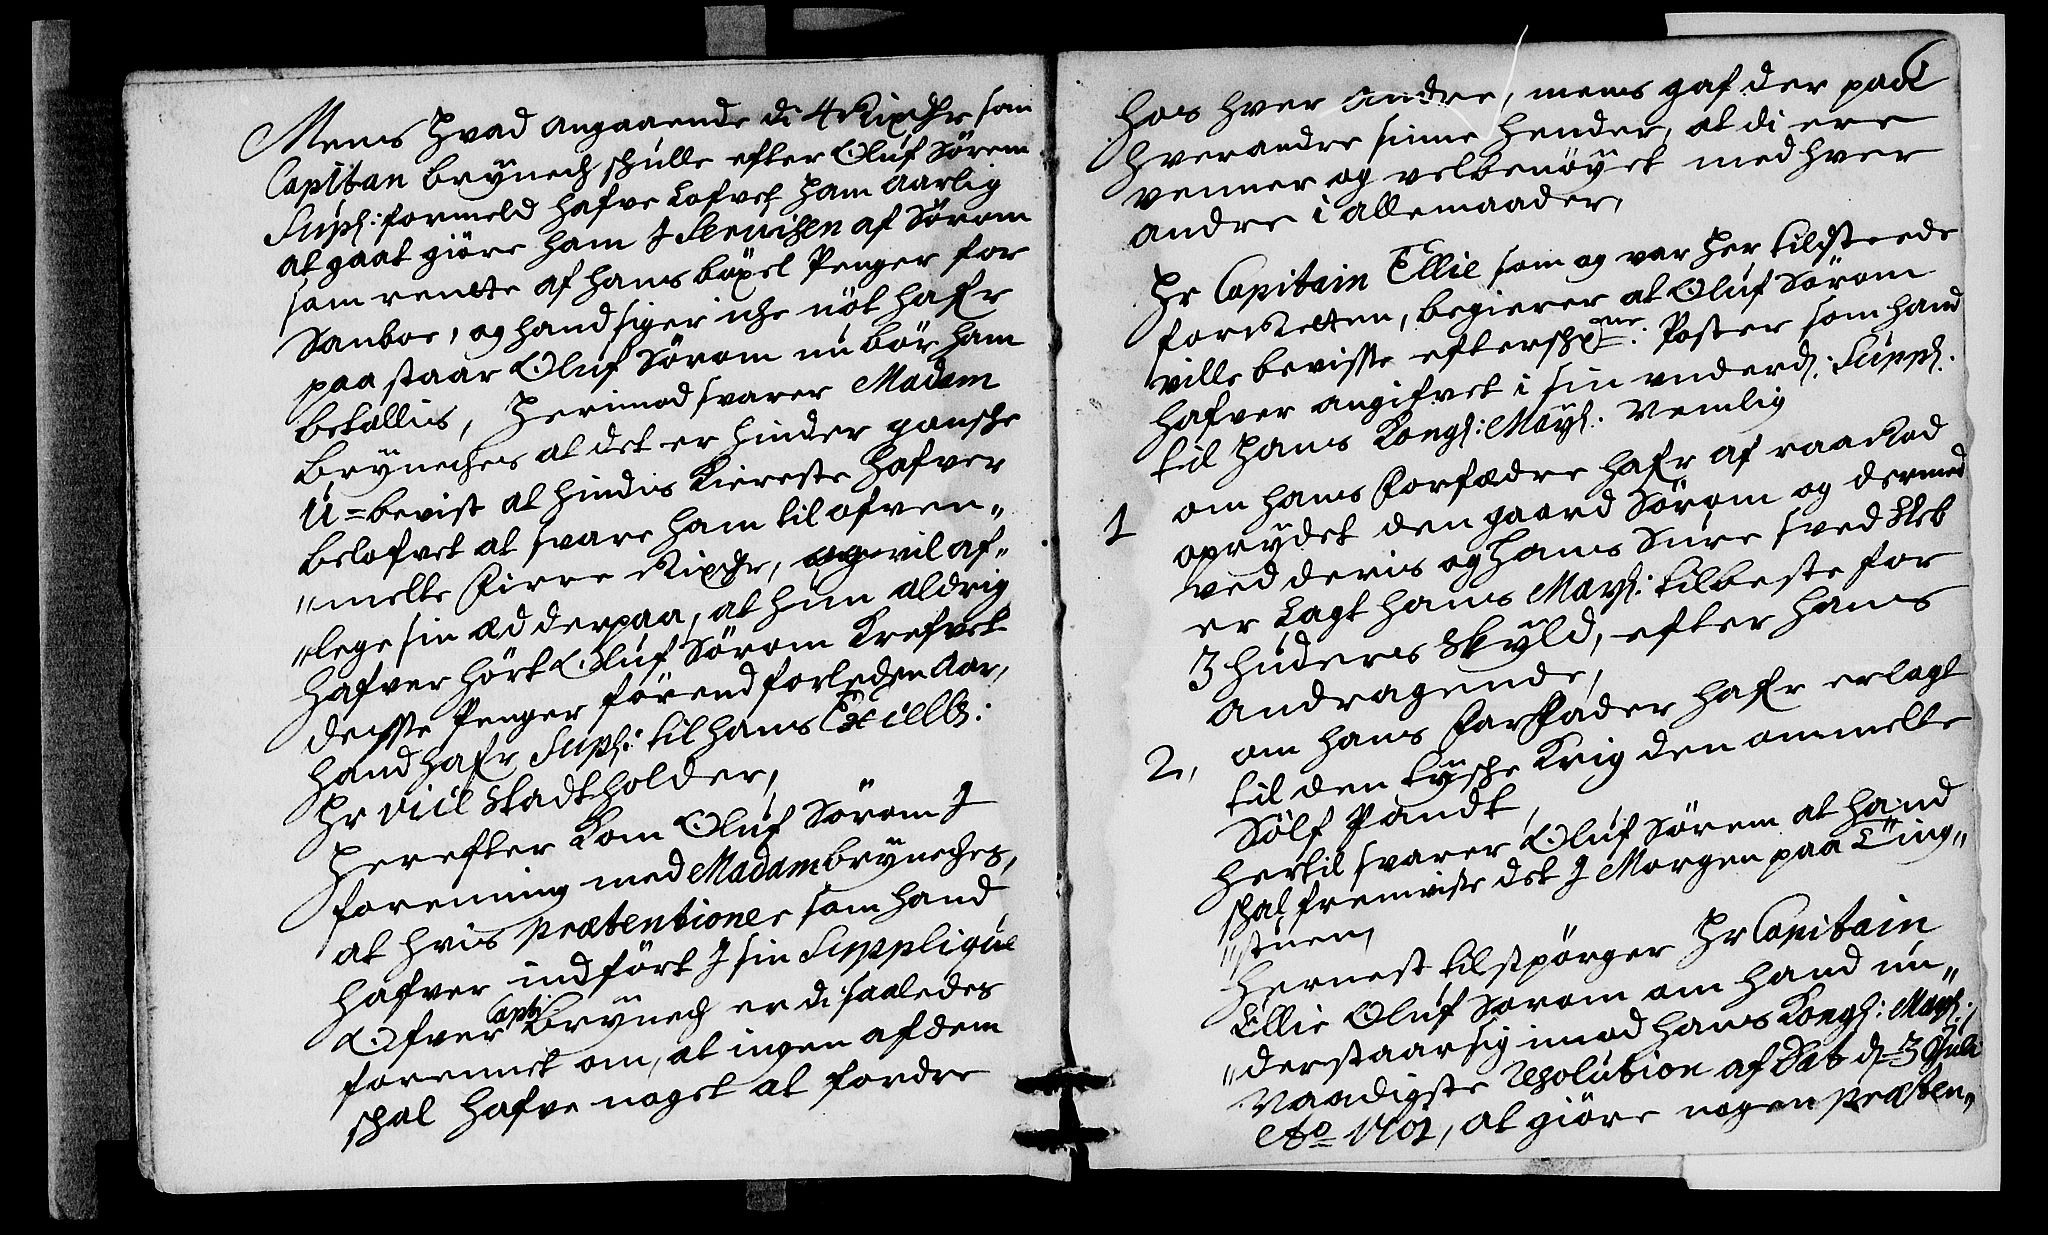 Mens Hvad angaaende di 4 Rixdlr som
Capitan Brÿnech schulle efter Oluf Sörem
Suppl: formeld hafve Lofvet ham aarlig
at gaat giöre ham I Stervichen af Sörom
som rentte af hans böxel Penger for
Sanboe, og hand siger iche nöt hafr
paastaar Oluf Sörom nu bör ham
betallis, Herimod svarer Madam
Brÿneches at det er hinder gansche
U=bevist at hindis Kiereste hafver
belofvet at svare ham til ofven„
„melte Firre Rixdlr, og vil af„
„lege sin æd derpaa, at hun aldrig
hafver hört Oluf Sörom Krefvet
desse Penger förend forleden Aar,
hand hafr Suppl: til hans Excells:
Hr Vice Stadtholder,
Herefter Kom Oluf Sörom I
forening med Madam Brÿneches,
at hvis Prætentioner som hand
hafver indfört I sin Supplique
Ofver Capt: Brÿnech er di saaledes
forennet om, at ingen af dem
schal hafve noget at fordre
6
hos hver andre, mens gaf der paa
hverandre sinne hender, at di ere
venner og velbenöÿet med hver
andre i allemaader,
Hr Capitain Ellie som og var Her tilstæde
for Retten, begierer at Oluf Sörom
ville bevisse efterschr:ne Poster som hand
hafver angifvet i sin underd: Suppl:
til Hans Kongl: Maÿt: Nemlig
1 om hans Forfædre hafr af raa Rod
oprÿdet den gaard Sörom og dermed
ved deris og hans Sure sved Eleb
er Lagt hans Maÿt: til beste for
3 huders Skÿld, efter hans
andragende,
2, om hans FarFader hafr erlagt
til den tÿsche Krig den ommelte
Sölf Pandt,
hertil svarer Oluf Sörem at hand
schal fremviste det I Morgen paa Ting„
„stuen,
Hernest tilspörger Hr Capitain
Ellie Oluf Sorom om hand un„
„derstaar sig imod hans Kongl: Maÿt:
Naadigste Resolution af Dat d 3 Juli
Ao 1702, at giöre nogen Præten„